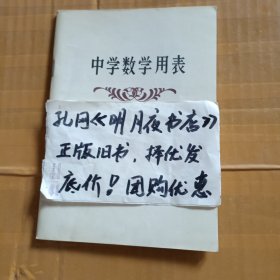 中学数学用表
孔网《明月夜书店》
正版旧书，择优发
底价！团购优惠